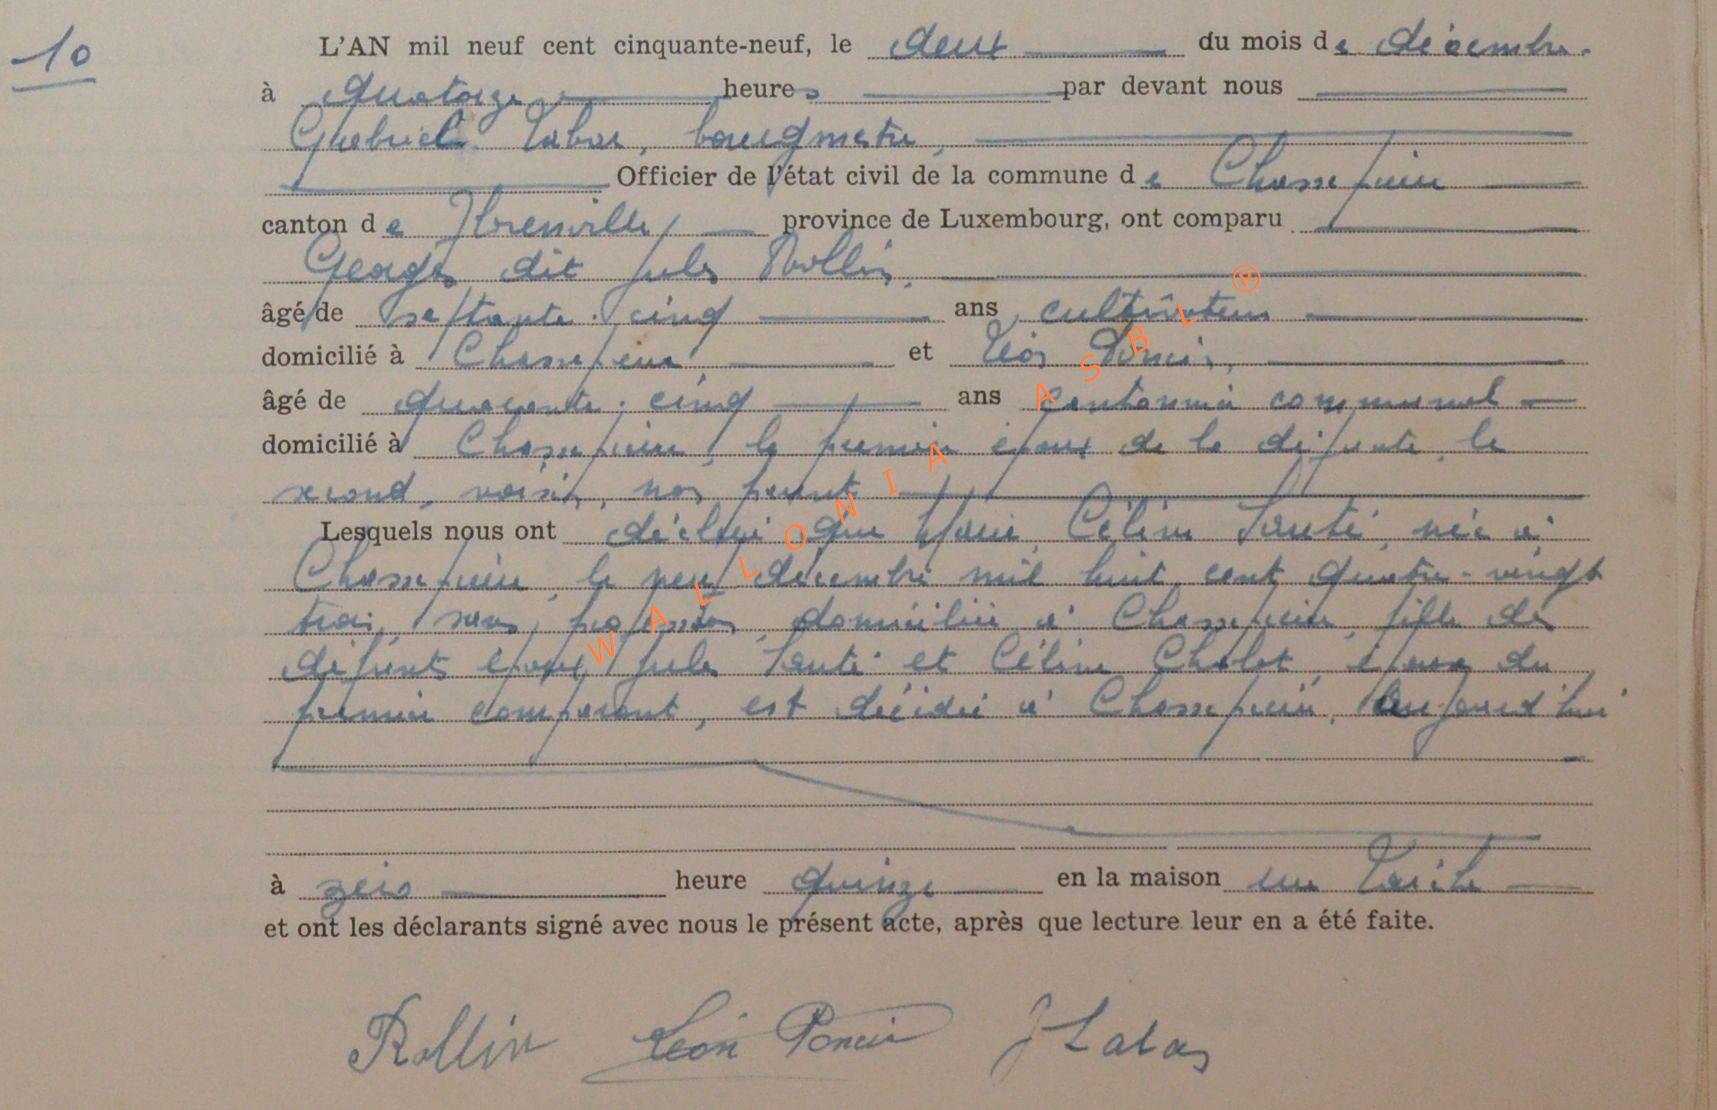 10
L'AN mil neuf cent cinquante-neuf, le deux du mois de décembre.
à quatorze heures par devant nous
Gabriel Labar, bourgmestre,
Officier de l'état civil de la commune de Chassepierre
canton de Florenville, province de Luxembourg, ont comparu
Georges dit Jules Rollin,
âgé de septante-cinq ans, cultivateur
domicilié à Chassepierre et Léon Poncin,
âgé de quarante-cinq ans cantonnier communal
domicilié à Chassepierre, le premier époux de la défunte, le
second, voisin, non parent
Lesquels nous ont déclaré que Marie Céline Santé, née à
Chassepierre, le neuf décembre mil huit cent quatre-vingt
trois, sans profession, domiciliée à Chassepierre, fille des
défunts époux Jules Santé et Céline Chalot, épouse du
premier comparant, est décédée à Chassepierre, aujourd'hui
à zéro heure quinze en la maison
et ont les déclarants signé avec nous le présent acte, après que lecture leur en a été faite.
Rollin Léon Poncin
WALLONIA ASBL ®